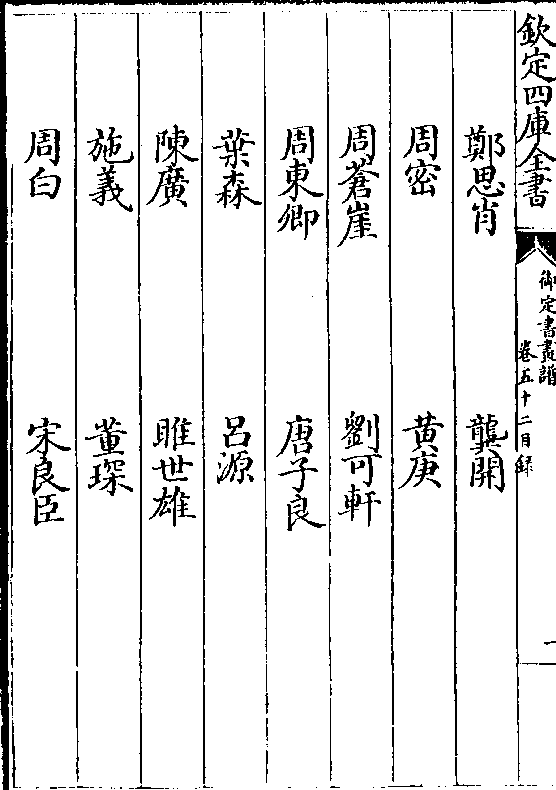 欽定四庫全書
御定書畫譜
卷五十二目録
一
鄭思肖 龔開
周密 黄庚
周蒼崖 劉可軒
周東卿 唐子良
葉森 呂源
陳廣 睢世雄
施義 董琛
周白 宋良臣